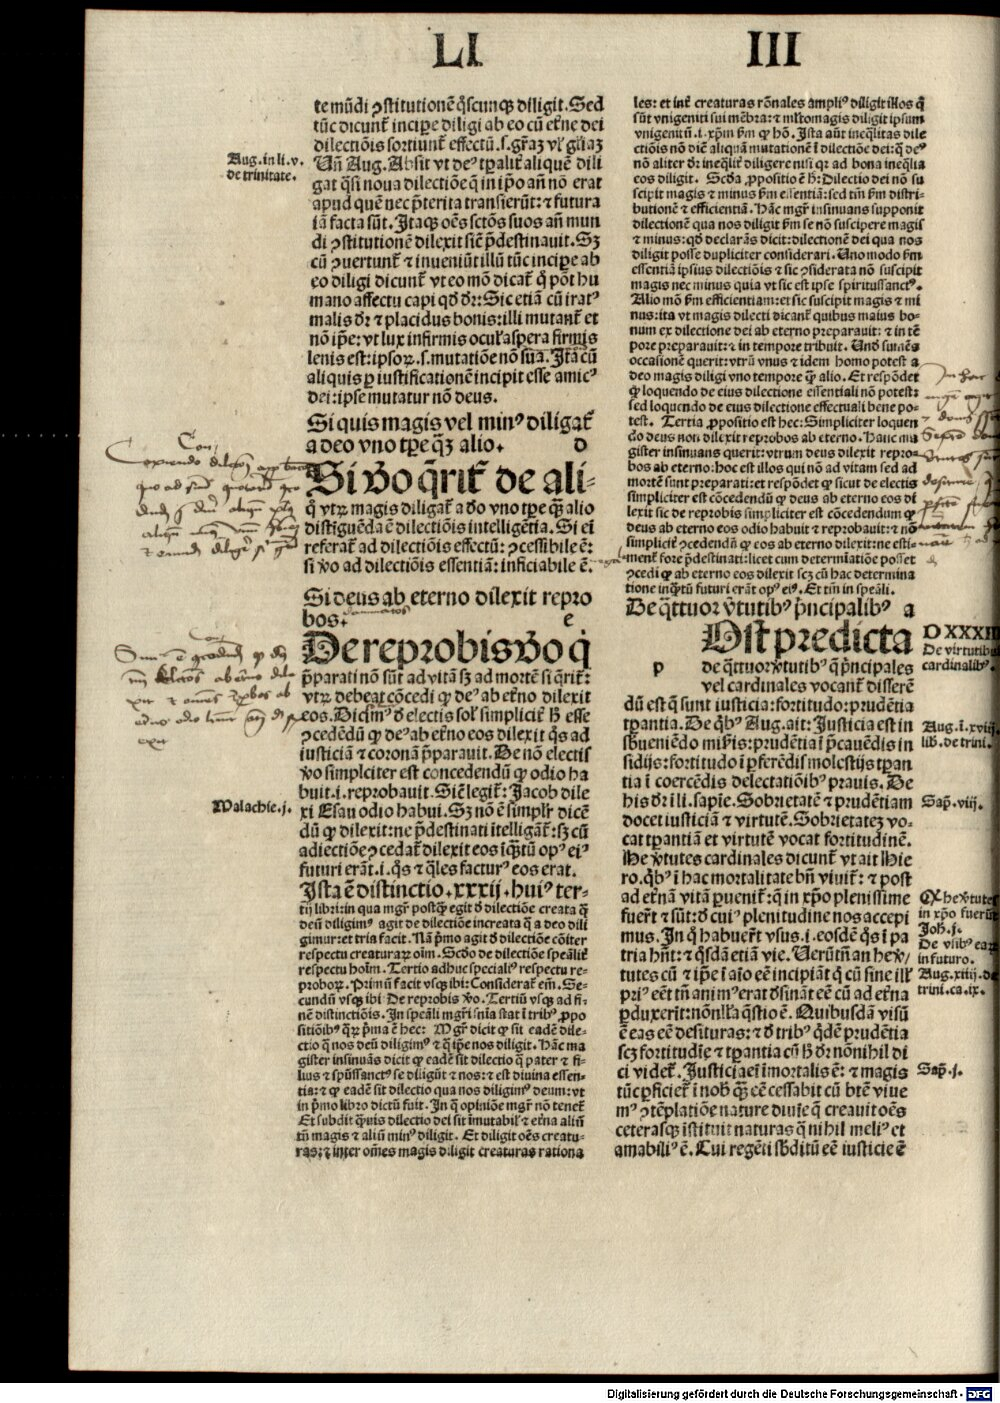 LI III
te mūdi ꝯstitutionē q̄scunqꝫ diligit. Sed
tūc dicunt̄ incipe diligi ab eo cū etn̄e dei
dilectiōis sortiunt̄ effectū. s. gr̄aꝫ vl' gl'iaꝫ
Aug. in li. v.
de trinitate.
Vn̄ Aug. Absit vt deꝰ tꝑalit̄ aliquē dili
gat q̄si noua dilectiōe q̄ in ip̄o an̄ nō erat
apud quē nec p̄terita transierūt: ⁊ futura
iā facta sūt. Itaqꝫ oēs sctōs suos an̄ mun
di ꝯstitutionē dilexit sic̄ p̄destinauit. Sꝫ
cū ꝯuertunt̄ ⁊ inueniūt illū tūc incipe ab
eo diligi dicunt̄ vt eo mō dicat̄ q̄ pōt hu
mano affectu capi qd̄ dr̄: Sic etiā cū iratꝰ
malis dr̄ ⁊ placidus bonis: illi mutant̄ et
nō ip̄e: vt lux infirmis ocul' aspera firmis
lenis est: ipsoꝝ. s. mutatiōe nō sua. Ita cū
aliquis ꝑ iustificationē incipit esse amicꝰ
dei: ipse mutatur nō deus.
Si quis magis vel minꝰ diligat̄
a deo vno tꝑe q̄ꝫ alio. d
Si v̄o q̄rit̄ de ali-
q̄ vtꝝ magis diligat̄ a d̄o vno tꝑe q̄ꝫ alio
distiguēda ē dilectiōis intelligētia. Si ei
referat̄ ad dilectiōis effectū: ꝯcessibile ē:
si v̄o ad dilectiōis essentiā: inficiabile ē.
Si deus ab eterno dilexit repro
bos. e
De reprobis v̄o q̄
p̄parati nō sūt ad vitā sꝫ ad mortē si q̄rit̄:
vtꝝ debeat cōcedi ꝙ deꝰ ab etn̄o dilexit
eos. Dicimꝰ d̄ electis sol' simplicit̄ h̄ esse
ꝯcedēdū ꝙ deꝰ ab etn̄o eos dilexit q̄s ad
iusticiā ⁊ coronā p̄parauit. De nō electis
v̄o simpliciter est concedendū ꝙ odio ha
buit. i. reprobauit. Sic̄ legit̄: Jacob dile
Malachie. j.
xi Esau odio habui. Sꝫ nō ē simplr̄ dicē
dū ꝙ dilexit: ne p̄destinati itelligāt̄: sꝫ cū
adiectiōe ꝯcedat̄ dilexit eos iq̄tū opꝰ eiꝰ
futuri erāt. i. q̄s ⁊ q̄les facturꝰ eos erat.
Ista ē distinctio. xxxij. huiꝰ ter-
tij libri: in qua mgr̄ postq̄ꝫ egit d̄ dilectiōe creata q̄
deū diligimꝰ agit de dilectiōe increata q̄ a deo dili
gimur: et tria facit. Nā p̄mo agit d̄ dilectiōe cōiter
respectu creaturaꝝ oīm. Scd̄o de dilectiōe spēalit̄
respectu hoīm. Tertio adhuc specialiꝰ respectu re-
proboꝝ. Primū facit vsqꝫ ibi: Considerat̄ em̄. Se-
cundū vsqꝫ ibi De reprobis v̄o. Tertiū vsqꝫ ad fi-
nē distinctiōis. In spēali mgr̄i snīa stat i tribꝰ ꝓpo
sitiōibꝰ q̄ꝝ p̄ma ē hec: Mgr̄ dicit ꝙ sit eadē dile-
ctio q̄ nos deū diligimꝰ ⁊ q̄ ip̄e nos diligit. Hāc ma
gister insinuās dicit ꝙ eadē sit dilectio q̄ pater ⁊ fi-
lius ⁊ spūssanctꝰ se diligūt ⁊ nos: ⁊ est diuina essen-
tia: ⁊ ꝙ eadē sit dilectio qua nos diligimꝰ deum: vt
in p̄mo libro dictū fuit. In q̄ opiniōe mgr̄ nō tenet̄
Et subdit q̄uis dilectio dei sit imutabil' ⁊ etn̄a aliū
tn̄ magis ⁊ aliū minꝰ diligit. Et diligit oēs creatu-
ras: ⁊ inter om̄es magis diligit creaturas rationa
les: et int̄ creaturas rōnales ampliꝰ diligit illos q̄
sūt vnigeniti sui mēbra: ⁊ multomagis diligit ipsum
vnigenitū. i. xp̄m ẜm ꝙ hō. Ista aūt ineq̄litas dile
ctiōis nō dic̄ aliquā mutationē i dilectiōe dei: q̄ deꝰ
nō aliter dr̄ ineq̄lit̄ diligere nisi qꝛ ad bona ineq̄lia
eos diligit. Scd̄a ꝓpositio ē h̄: Dilectio dei nō su
scipit magis ⁊ minus ẜm essentiā: sed tm̄ ẜm distri-
butionē ⁊ efficientiā. Hāc mgr̄ insinuans supponit
dilectionē qua nos diligit ẜm se nō suscipere magis
⁊ minus: qd̄ declarās dicit: dilectionē dei qua nos
diligit posse dupliciter considerari. Uno modo ẜm
essentiā ipsius dilectiōis ⁊ sic ꝯsiderata nō suscipit
magis nec minus quia vt sic est ipse spiritussanctꝰ.
Alio mō ẜm efficientiam: et sic suscipit magis ⁊ mi
nus: ita vt magis dilecti dicant̄ quibus maius bo-
num ex dilectione dei ab eterno preparauit: ⁊ in tē
pore preparauit: ⁊ in tempore tribuit. Und̄ sumēs
occasionē querit: vtrū vnus ⁊ idem homo potest a
deo magis diligi vno tempore q̄ꝫ alio. Et respōdet
ꝙ loquendo de eius dilectione essentiali nō potest:
sed loquendo de eius dilectione effectuali bene po-
test. Tertia ꝓpositio est hec: Simpliciter loquen
do deus non dilexit reprobos ab eterno. Hanc ma
gister insinuans querit: vtrum deus dilexit repro-
bos ab eterno: hoc est illos qui nō ad vitam sed ad
mortē sunt preparati: et respōdet ꝙ sicut de electis
simpliciter est cōcedendū ꝙ deus ab eterno eos di
lexit sic de reprobis simpliciter est cōcedendum ꝙ
deus ab eterno eos odio habuit ⁊ reprobauit: ⁊ nō
simplicit̄ ꝯcedendū ꝙ eos ab eterno dilexit: ne esti-
ment̄ fore p̄destinati: licet cum determiatiōe posset
ꝯcedi ꝙ ab eterno eos dilexit scꝫ cū hac determina
tione inq̄tū futuri erāt opꝰ eiꝰ. Et tm̄ in spēali.
De q̄ttuor v̄tutibꝰ p̄ncipalibꝰ a
DXXXIII
De virtutibꝰ
cardinalibꝰ.
Ost predicta
p de q̄ttuor v̄tutibꝰ q̄ p̄ncipales
vel cardinales vocant̄ disserē
dū est q̄ sunt iusticia: fortitudo: prudētia
tꝑantia. De qb̄ꝰ Aug. ait: Justicia est in
Aug. i. xviij.
lib. de trini.
sb̄ueniēdo mis̄is: prudētia i p̄cauēdis in
sidijs: fortitudo i ꝑferēdis molestijs tꝑan
tia i coercēdis delectatiōibꝰ prauis. De
his dr̄ i li. sapie. Sobrietatē ⁊ prudētiam
Sap. viij.
docet iusticiā ⁊ virtutē. Sobrietateꝫ vo-
cat tꝑantiā et virtutē vocat fortitudinē.
He v̄tutes cardinales dicunt̄ vt ait Hie
ro. qb̄ꝰ i hac mortalitate bn̄ viuit̄: ⁊ post
ad etn̄ā vitā ꝑuenit̄: q̄ in xp̄o plenissime
Qꝫ he v̄tutes
in xp̄o fuerūt
Joh. j.
fuer̄t ⁊ sūt: d̄ cuiꝰ plenitudine nos accepi
mus. In q̄ habuer̄t vsus. i. eosdē q̄s i pa
De vsibꝰ eaꝝ
in futuro.
Aug. xiiij. de
trini. ca. ix.
tria hn̄t: ⁊ q̄sdā etiā vie. Uerūtn̄ an he v̄
tutes cū ⁊ ip̄e i aīo eē incipiāt q̄ cū sine ill'
priꝰ eēt tn̄ animꝰ erat d̄sināt eē cū ad etn̄a
ꝑduxerit: nōnl'la q̄stio ē. Quibusdā visū
ē eas eē desituras: ⁊ d̄ tribꝰ q̄dē prudētia
scꝫ fortitudīe ⁊ tꝑantia cū h̄ dr̄: nō nihil di
ci videt̄. Justicia ei imortalis ē: ⁊ magis
Sap. j.
tūc ꝑficiet̄ i nob̄ q̄ꝫ eē cessabit cū btē viue
mꝰ ꝯtēplatiōe nature diuie q̄ creauit oēs
ceterasqꝫ istituit naturas q̄ nihil meliꝰ et
amabiliꝰ ē. Cui regēti sb̄ditū eē iusticie ē
Digitalisierung gefördert durch die Deutsche Forschungsgemeinschaft - DFG